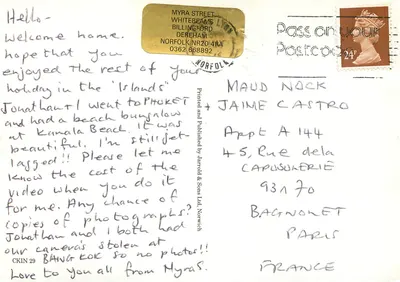 Hello-
Welcome home.
hope that you
enjoyed The rest of your
holiday in the "Islands"
Jonathan + I went to PHUKET
and had a beach bungalow
at Kamala Beach. It was
beautiful. I'm still jet-
lagged!! Please let me
know the cost of the
video when you do it
for me. Any chance of
copies of photographs?
Jonathan and I both had
our cameras stolen at
BANGKOK so no photos!!
Love to you all from Myra S.
CKIN 29
MYRA STREET
WHITEBEAMS
BILLINGFORD
DEREHAM
NORFOLK NR20 4AA
NORFOLK
Pass on your
Postco
24P
Printed and Published by Jarrold & Sons Ltd, Norwich
MAUD NOCK
+ JAIME CASTRO
Appt A 144
45, Rue de la
CAPUSULERIE
93170
BAGNOLET
PARIS
FRANCE